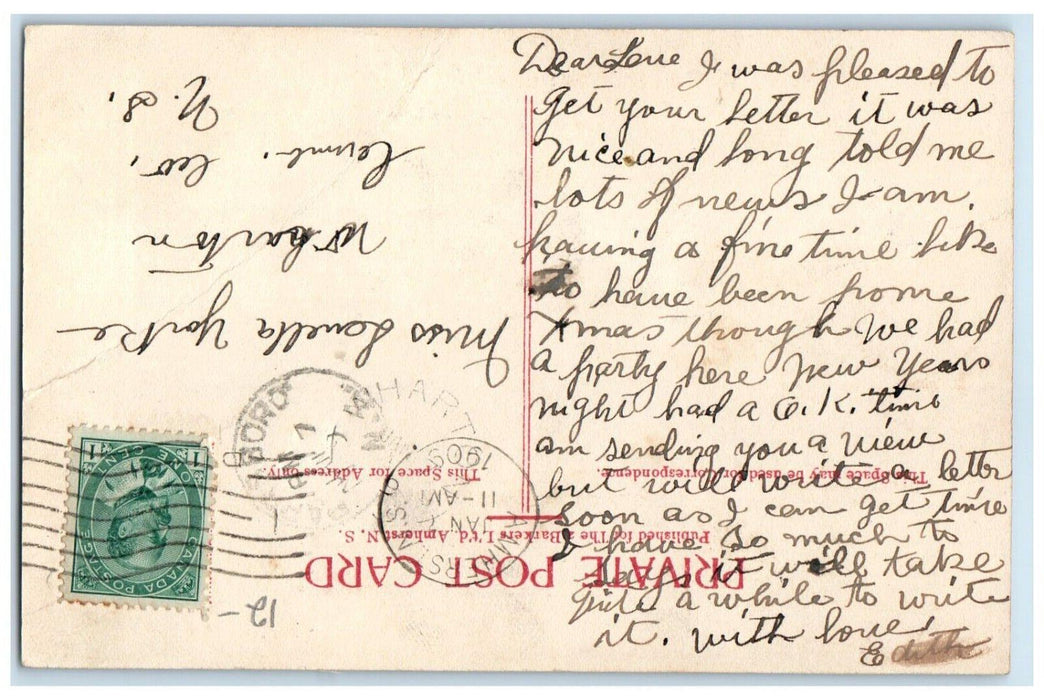 Dear Lene I was pleased to
get your letter it was
nice and long told me
lots of news I am,
having a fine time like
to have been home
Xmas though we had
a party here New Years
night had a O.K. time
am sending you a view
but will write a letter
soon as I can get time
I have so much to
say it will take
quite a while to write
it. with love,
Edith
PRIVATE POST CARD
Published for The 2 Barkers L't'd, Amherst N. S.
This Space may be used for Correspondence.
This Space for Address only.
Miss Lenella Yorke
Wharton
Cumb. Co,
N. S.
AMHERST N.S.
11-AM
JAN
1905
HART
CANADA POSTAGE
ONE CENT
1 1
12-